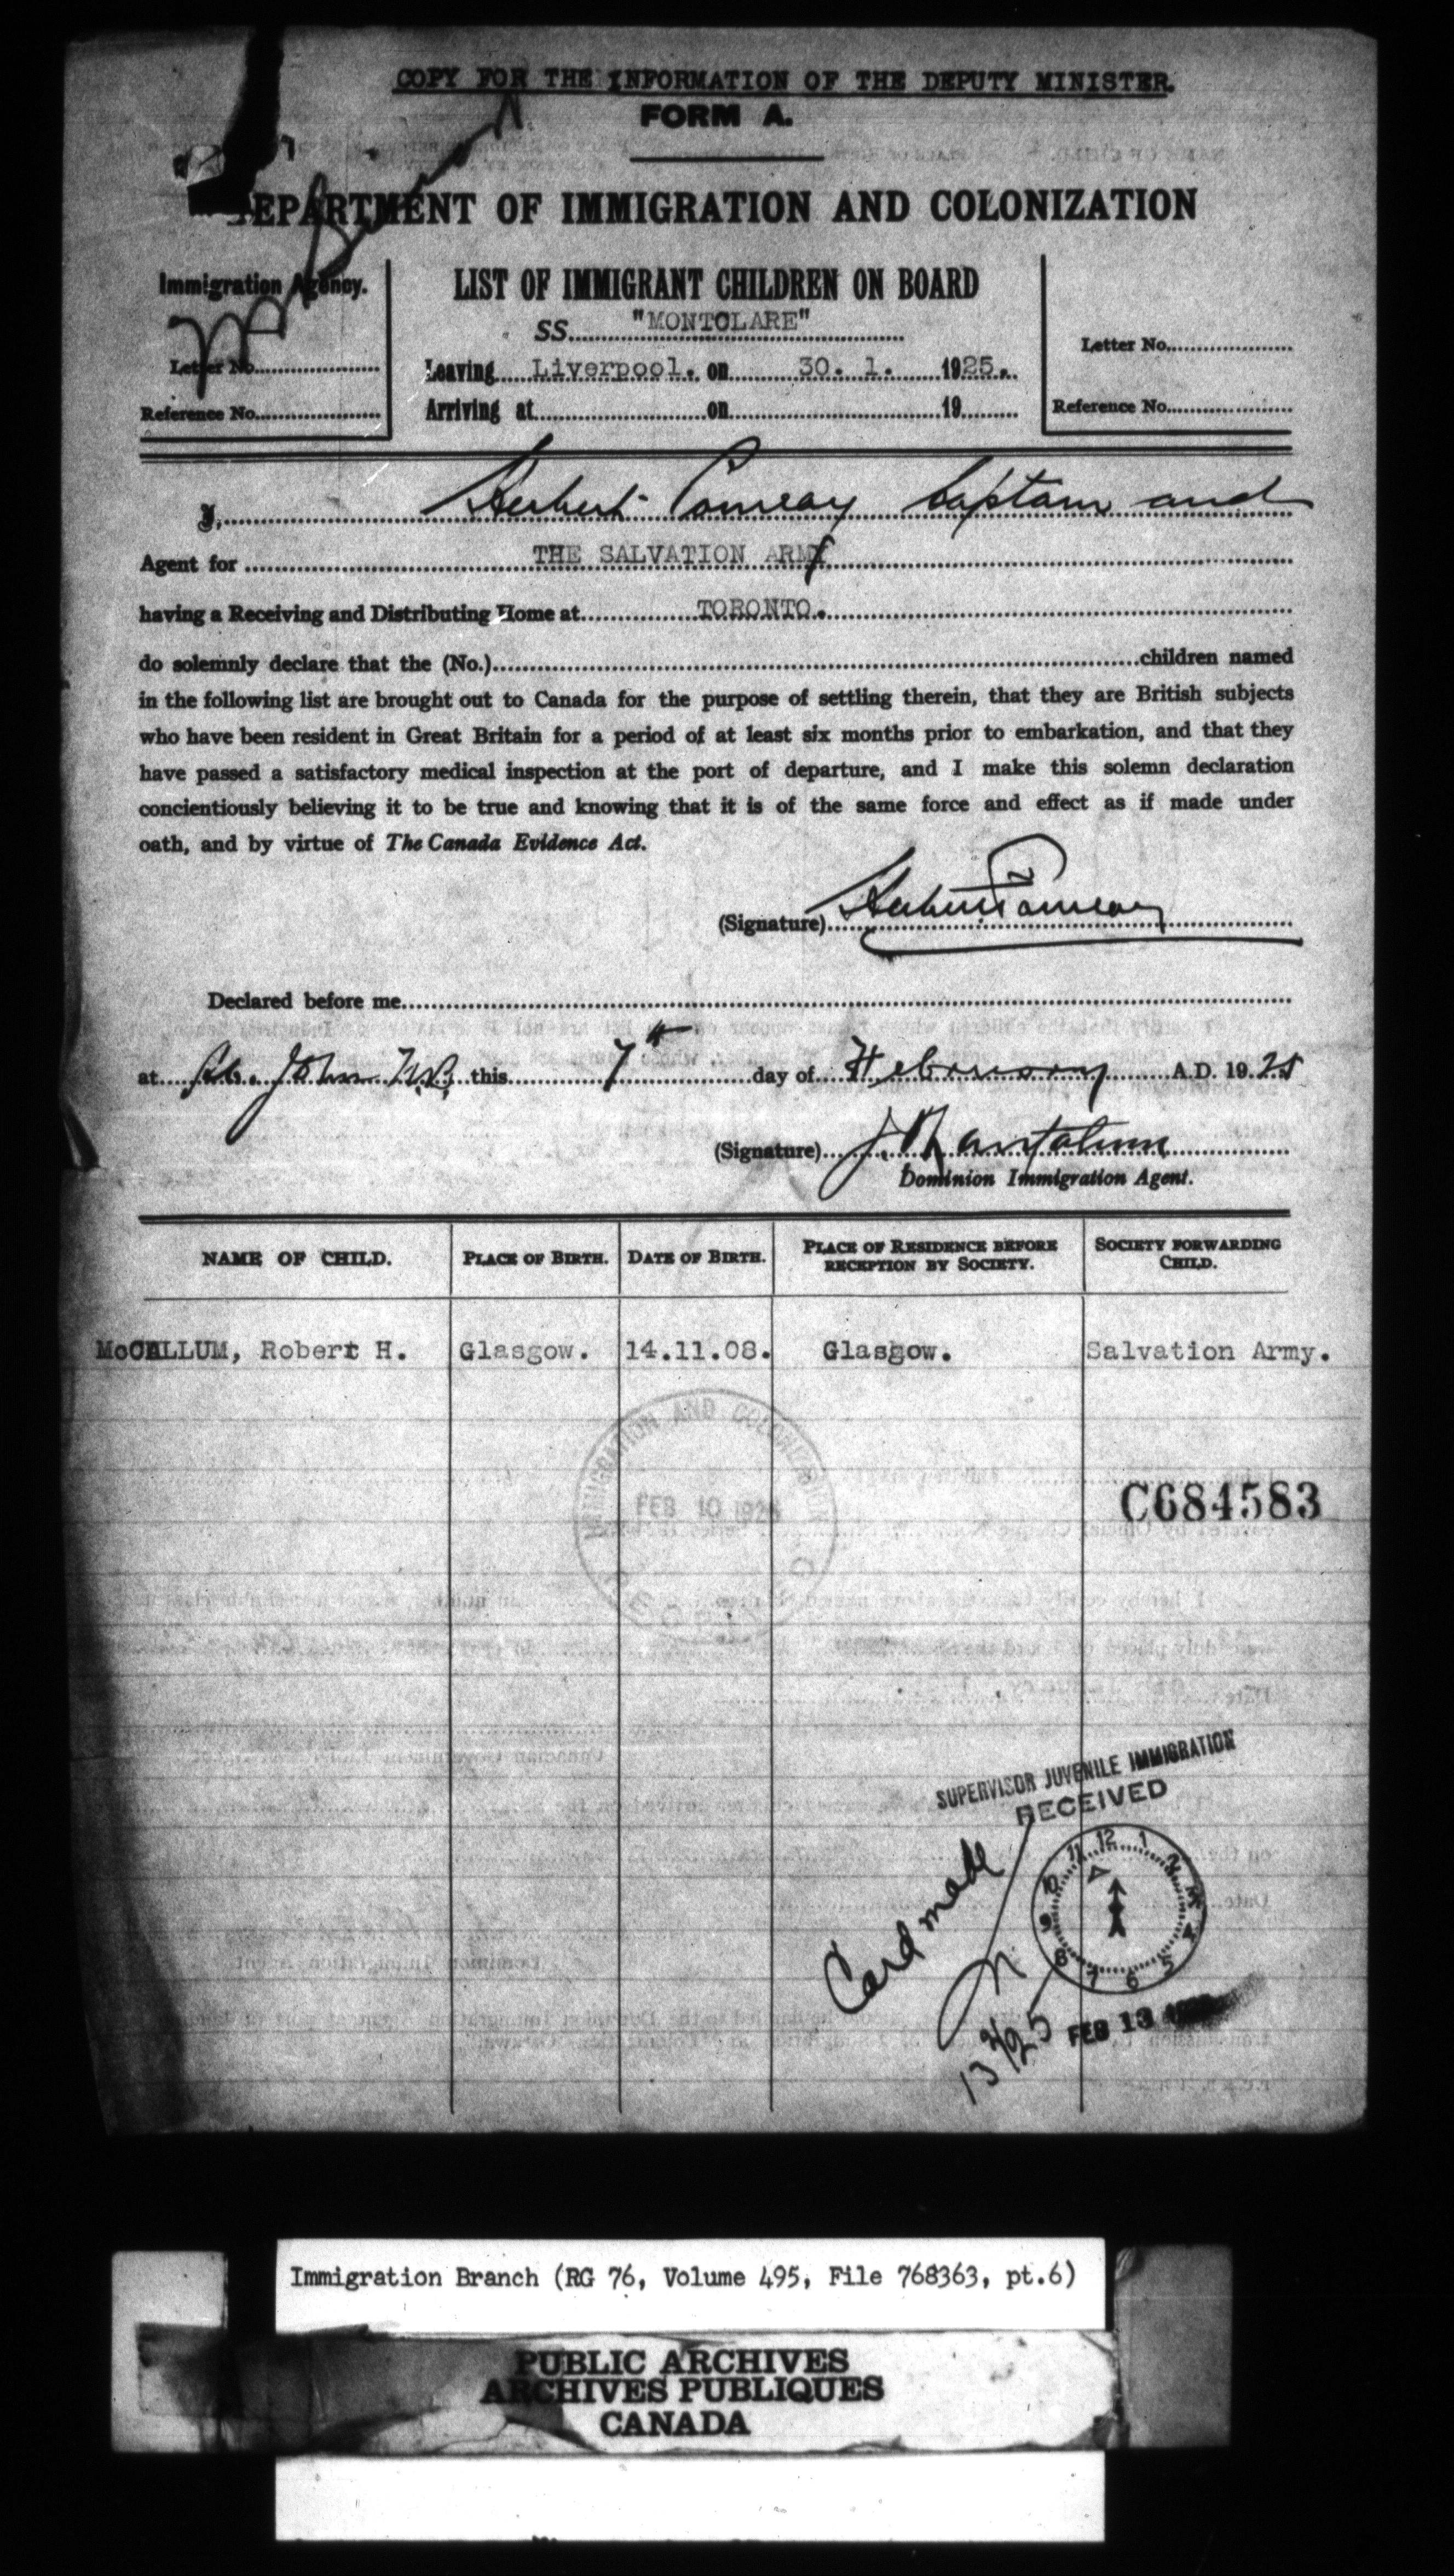 COPY FOR THE INFORMATION OF THE DEPUTY MINISTER.
FORM A.
DEPARTMENT OF IMMIGRATION AND COLONIZATION
Immigration Agency.
Letter No.
Reference No.
LIST OF IMMIGRANT CHILDREN ON BOARD
SS. "MONTCLARE"
Leaving Liverpool. on 30. 1. 1925.
Arriving at on 19
Letter No.
Reference No.
I, Herbert Captain and
Agent for THE SALVATION ARMY
having a Receiving and Distributing Home at TORONTO.
do solemnly declare that the (No.) children named
in the following list are brought out to Canada for the purpose of settling therein, that they are British subjects
who have been resident in Great Britain for a period of at least six months prior to embarkation, and that they
have passed a satisfactory medical inspection at the port of departure, and I make this solemn declaration
concientiously believing it to be true and knowing that it is of the same force and effect as if made under
oath, and by virtue of The Canada Evidence Act.
(Signature) Herbert
Declared before me
at St. John N.B. this 7th day of February A.D. 1925
(Signature) J.
Dominion Immigration Agent.
NAME OF CHILD. PLACE OF BIRTH. DATE OF BIRTH. PLACE OF RESIDENCE BEFORE RECEPTION BY SOCIETY. SOCIETY FORWARDING CHILD.
McCALLUM, Robert H. Glasgow. 14.11.08. Glasgow. Salvation Army.
IMMIGRATION AND COLONIZATION
FEB 10 192
C684583
SUPERVISOR JUVENILE IMMIGRATION
RECEIVED
12 1 2 3 4 5 6 7 8 9 10 11
Card made
13/2/25
FEB 13
Immigration Branch (RG 76, Volume 495, File 768363, pt.6)
PUBLIC ARCHIVES
ARCHIVES PUBLIQUES
CANADA